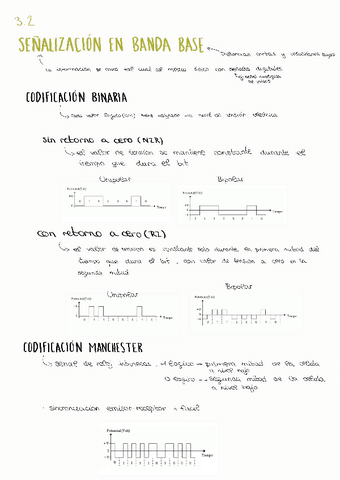 3.2
SEÑALIZACIÓN EN BANDA BASE → Distancias cortas y velocidades bajas
↳ la información se envía tal cual al medio físico con señales digitales
CODIFICACIÓN BINARIA
↳ cada valor lógico (0/1) tiene asignado un nivel de tensión eléctrica
Sin retorno a cero (NZR)
↳ el valor de tensión se mantiene constante durante el
tiempo que dura el bit
Unipolar Bipolar
Potencial (Volt) Potencial (Volt)
Tiempo Tiempo
Con retorno a cero (RZ)
↳ el valor de tensión es constante solo durante la primera mitad del
tiempo que dura el bit, con valor de tensión a cero en la
segunda mitad
Unipolar Bipolar
Potencial (Volt) Potencial (Volt)
Tiempo Tiempo
CODIFICACIÓN MANCHESTER
↳ señal de reloj 1 lógico → primera mitad de la celda
a nivel bajo
0 lógico → segunda mitad de la celda
a nivel bajo
· sincronización emisor receptor + fácil
Potencial (Volt)
Tiempo